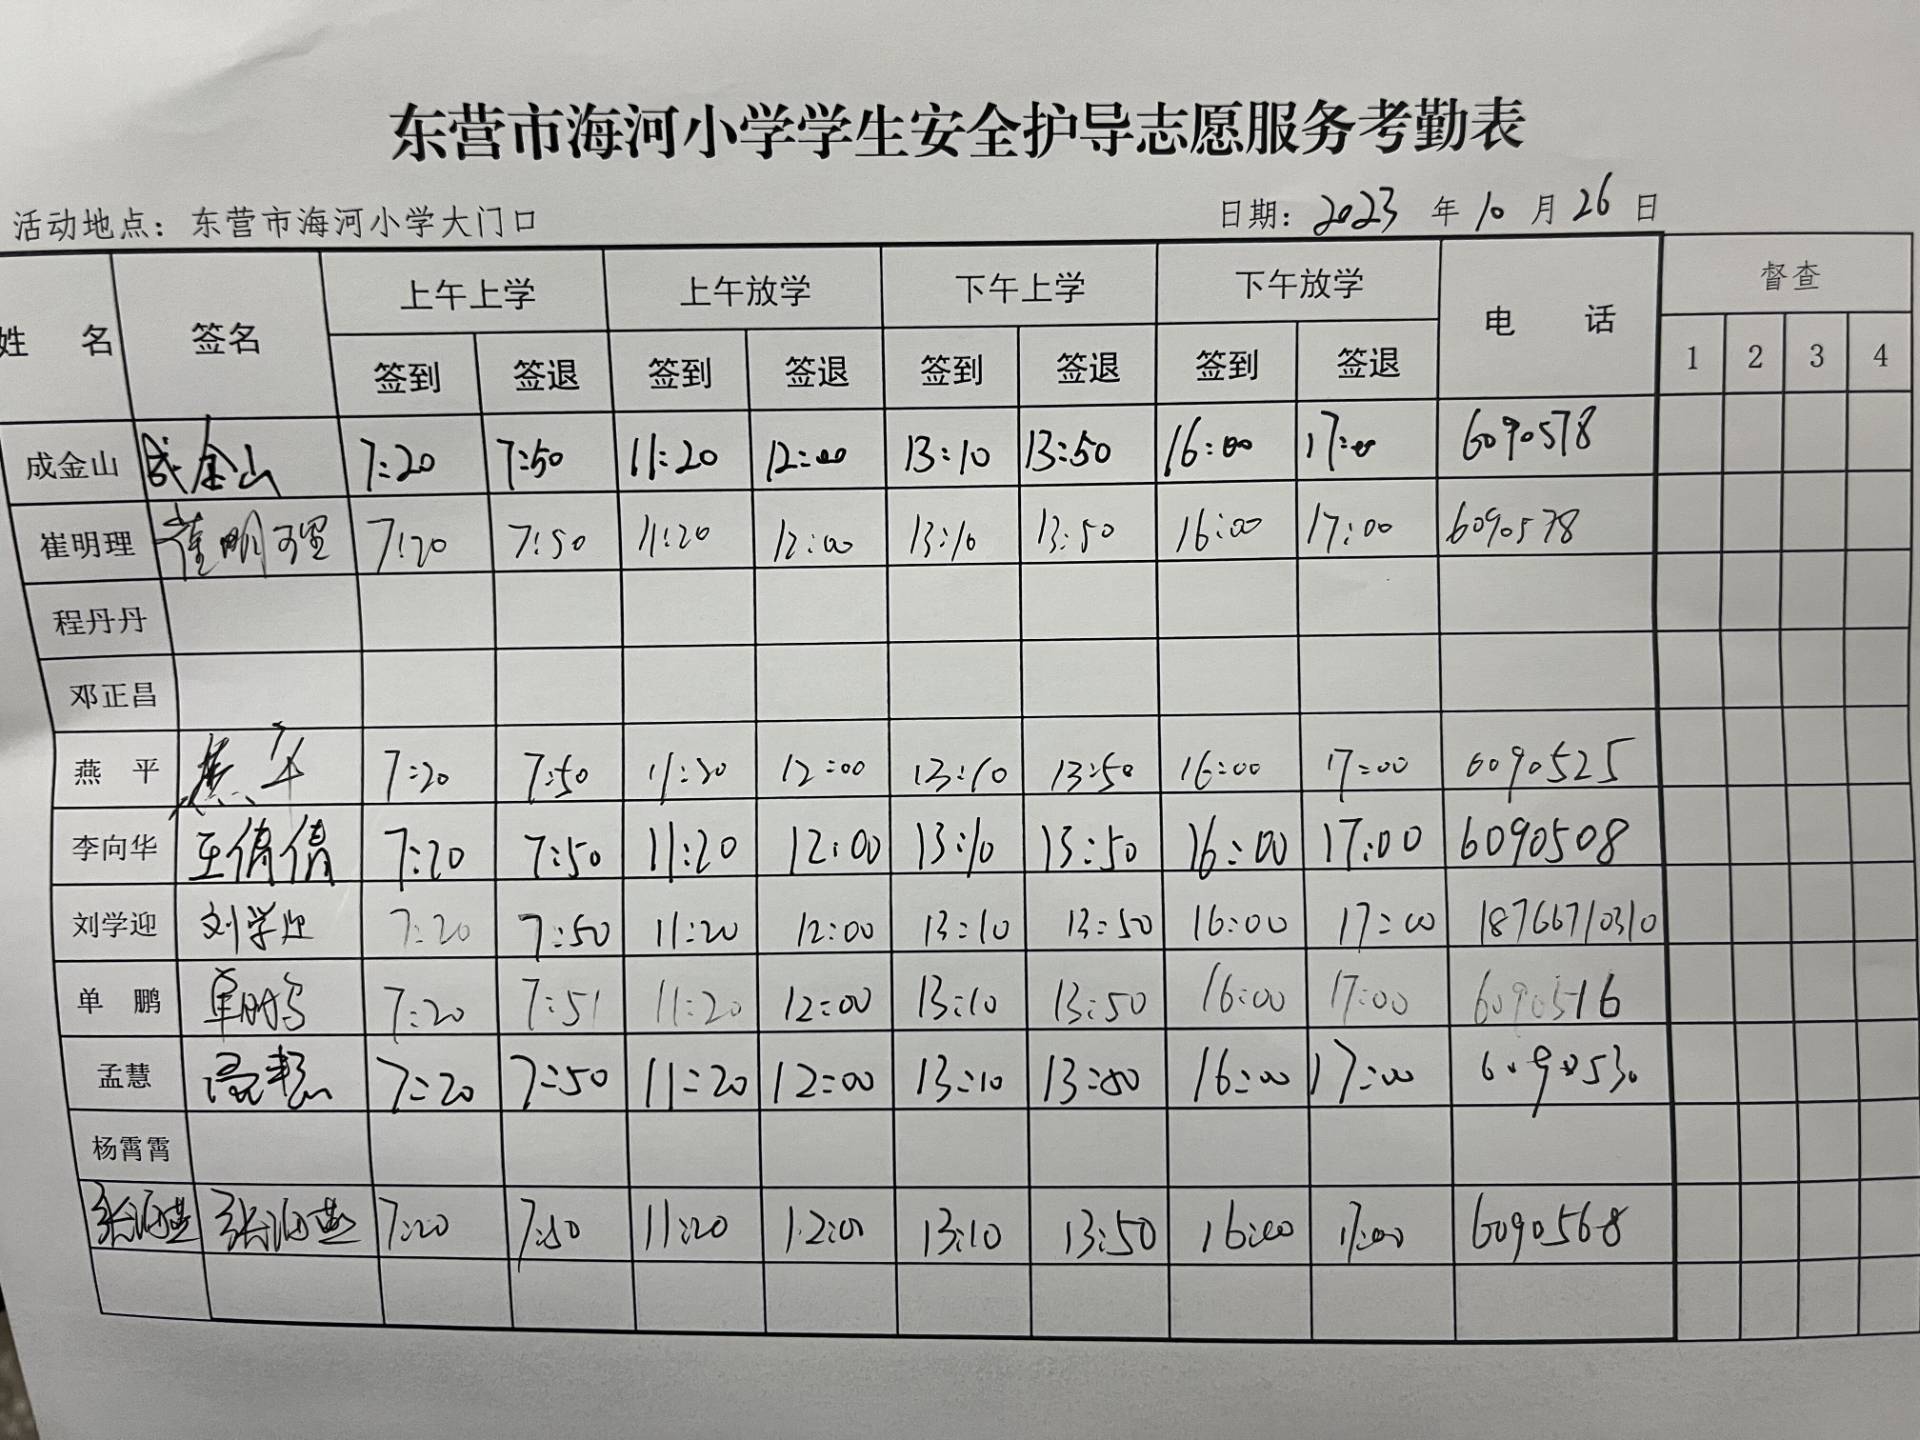 东营市海河小学学生安全护导志愿服务考勤表
活动地点：东营市海河小学大门口 日期：2023 年 10 月 26 日
姓 名 签名 上午上学 上午放学 下午上学 下午放学 电 话 督查
签到 签退 签到 签退 签到 签退 签到 签退 1 2 3 4
成金山 成金山 7:20 7:50 11:20 12:00 13:10 13:50 16:00 17:00 6090578
崔明理 崔明理 7:20 7:50 11:20 12:00 13:10 13:50 16:00 17:00 6090578
程丹丹
邓正昌
燕 平 燕平 7:20 7:50 11:20 12:00 13:10 13:50 16:00 17:00 6090525
李向华 王倩倩 7:20 7:50 11:20 12:00 13:10 13:50 16:00 17:00 6090508
刘学迎 刘学迎 7:20 7:50 11:20 12:00 13:10 13:50 16:00 17:00 18766710310
单 鹏 单鹏 7:20 7:51 11:20 12:00 13:10 13:50 16:00 17:00 6090516
孟慧 孟慧 7:20 7:50 11:20 12:00 13:10 13:50 16:00 17:00 6090530
杨霄霄
张海燕 张海燕 7:20 7:50 11:20 12:00 13:10 13:50 16:00 17:00 6090568